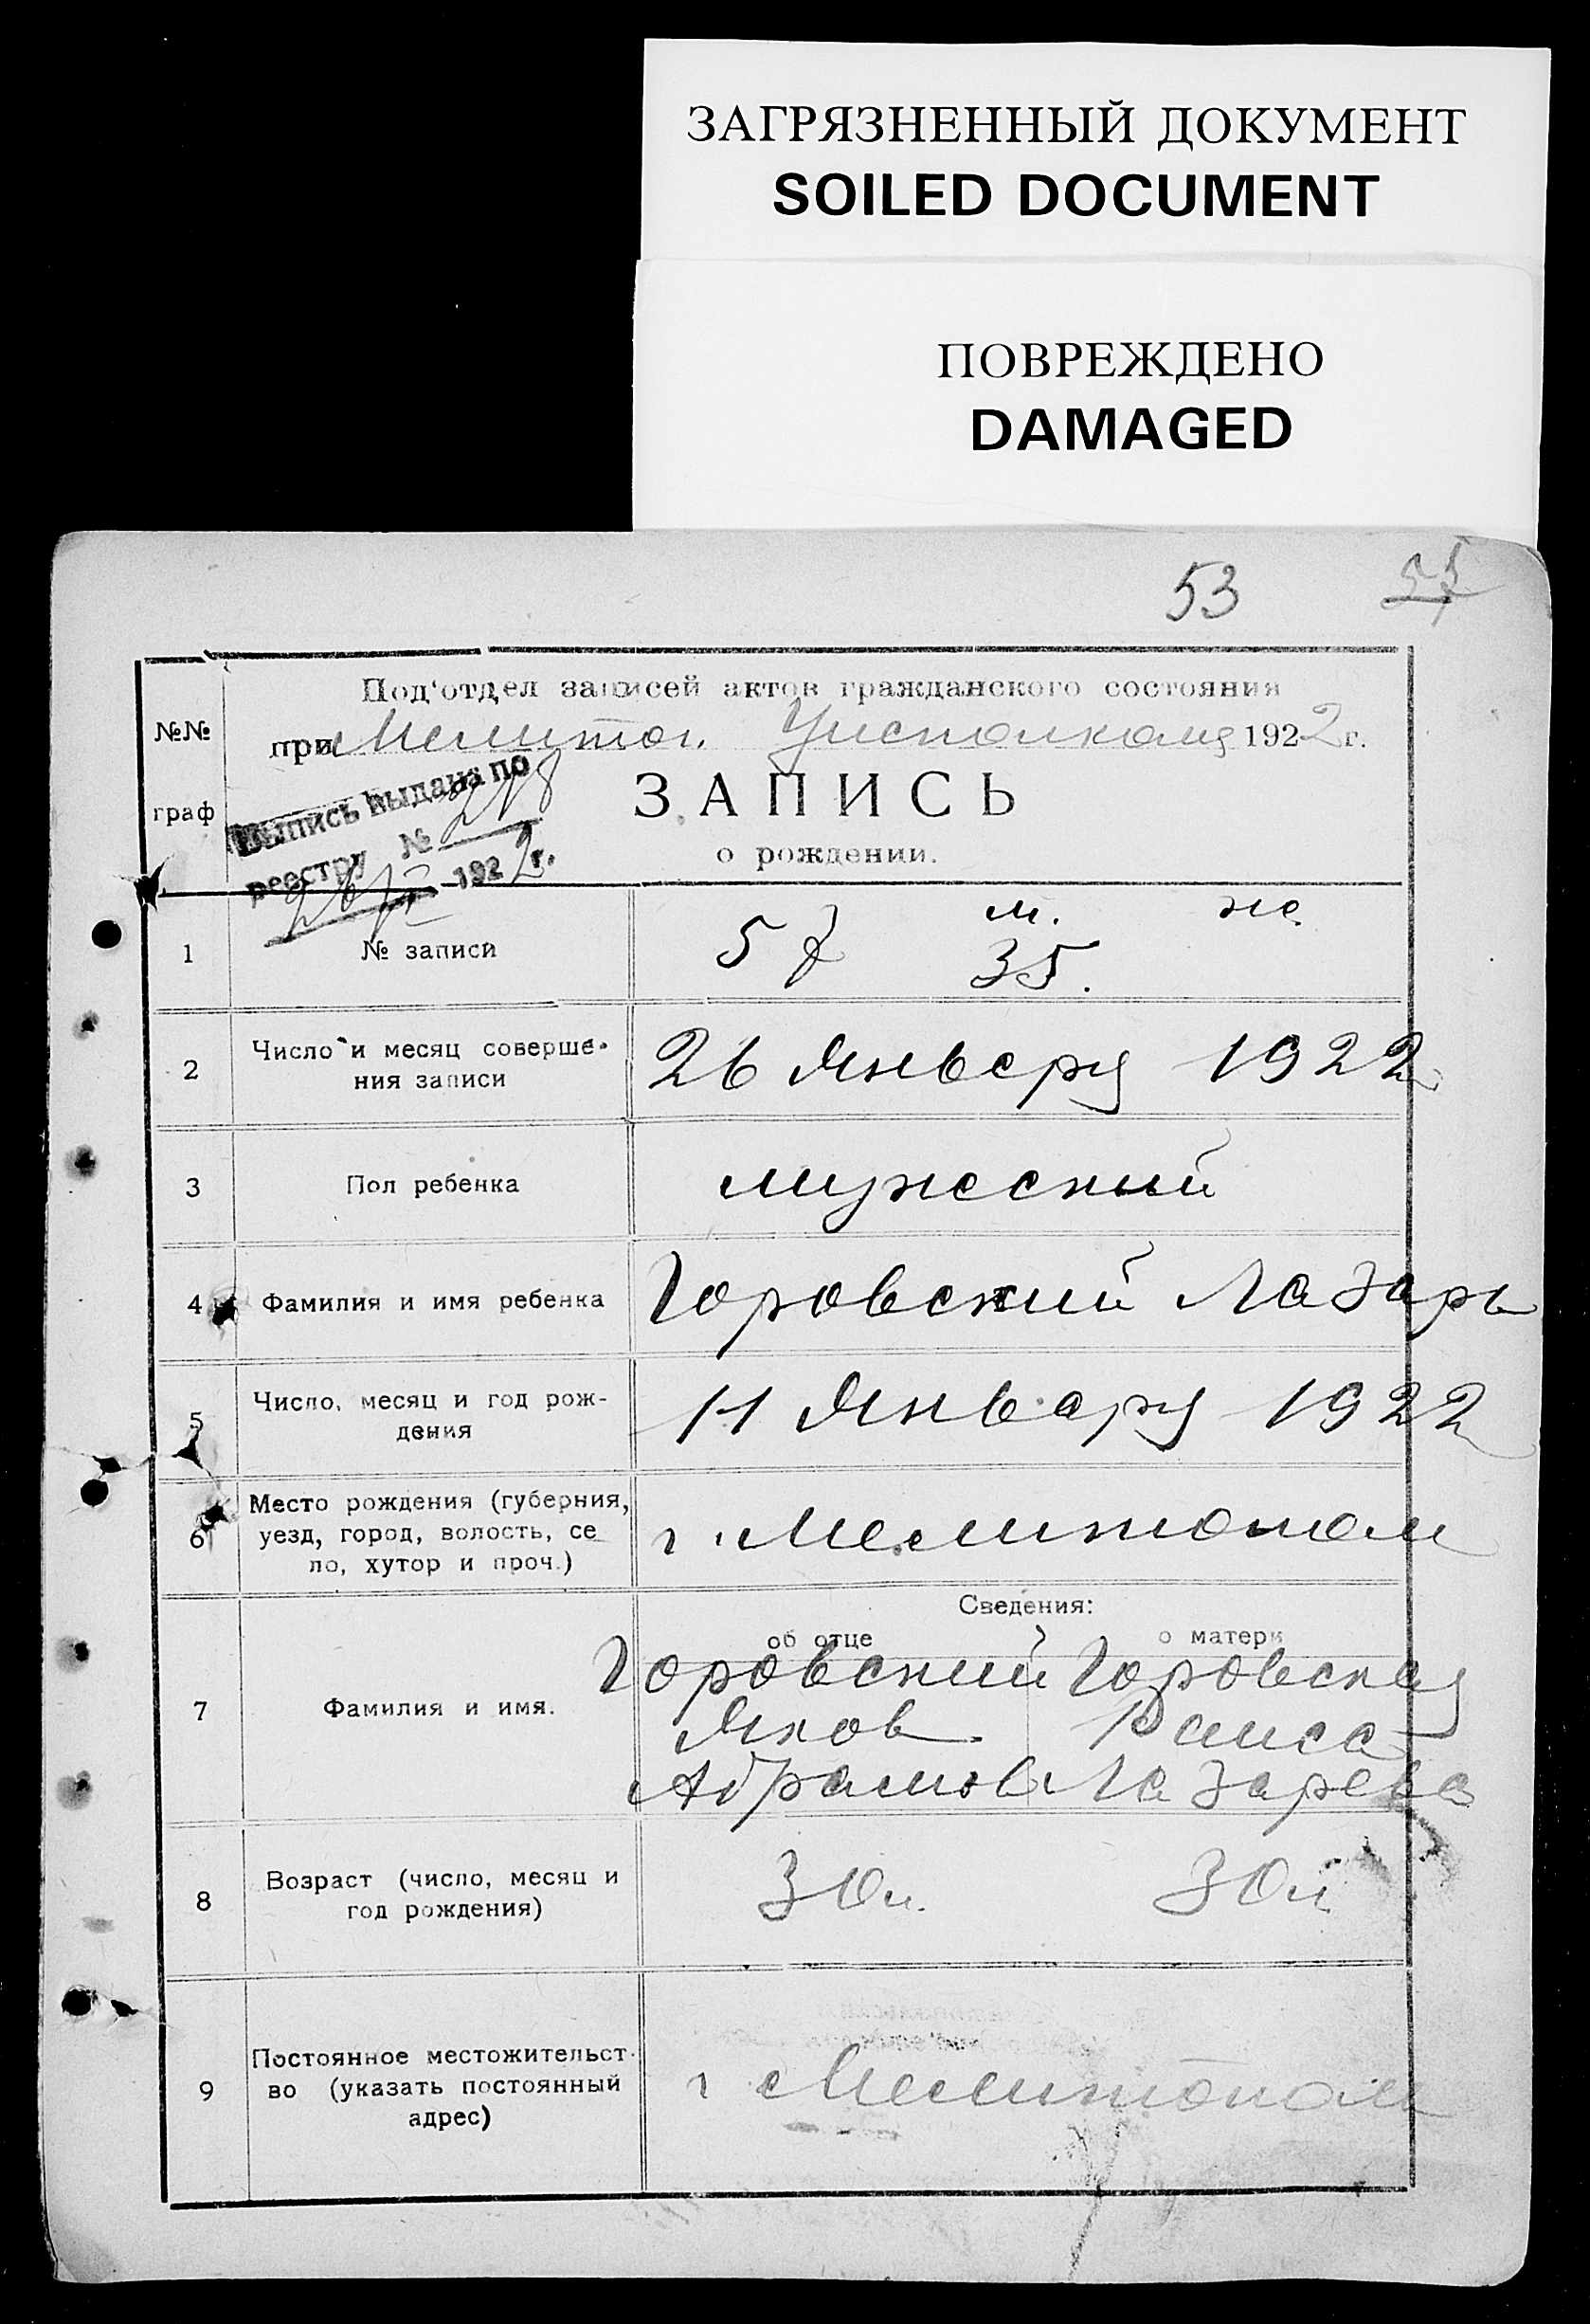 ЗАГРЯЗНЕННЫЙ ДОКУМЕНТ
SOILED DOCUMENT
ПОВРЕЖДЕНО
DAMAGED
53
Под'отдел записей актов гражданского состояния
№№
при Мелитоп. Уисполкому 1922 г.
граф
ЗАПИСЬ
о рождении.
Выпись выдана по
реестру № 218
1922 г.
м. ж.
1 № записи 57 35.
2 Число и месяц соверше-
ния записи 26 Январу 1922
3 Пол ребенка мужеский
4 Фамилия и имя ребенка Горовский Лазарь
5 Число, месяц и год рож-
дения 11 Январу 1922
6 Место рождения (губерния,
уезд, город, волость, се
ло, хутор и проч.) г. Мелитополь
Сведения:
об отце о матери
7 Фамилия и имя. Горовский Горовская
Яков Раиса
Абрамов Лазарева
8 Возраст (число, месяц и
год рождения) 30 л. 30 л.
9 Постоянное местожительст-
во (указать постоянный
адрес) г Мелитополь